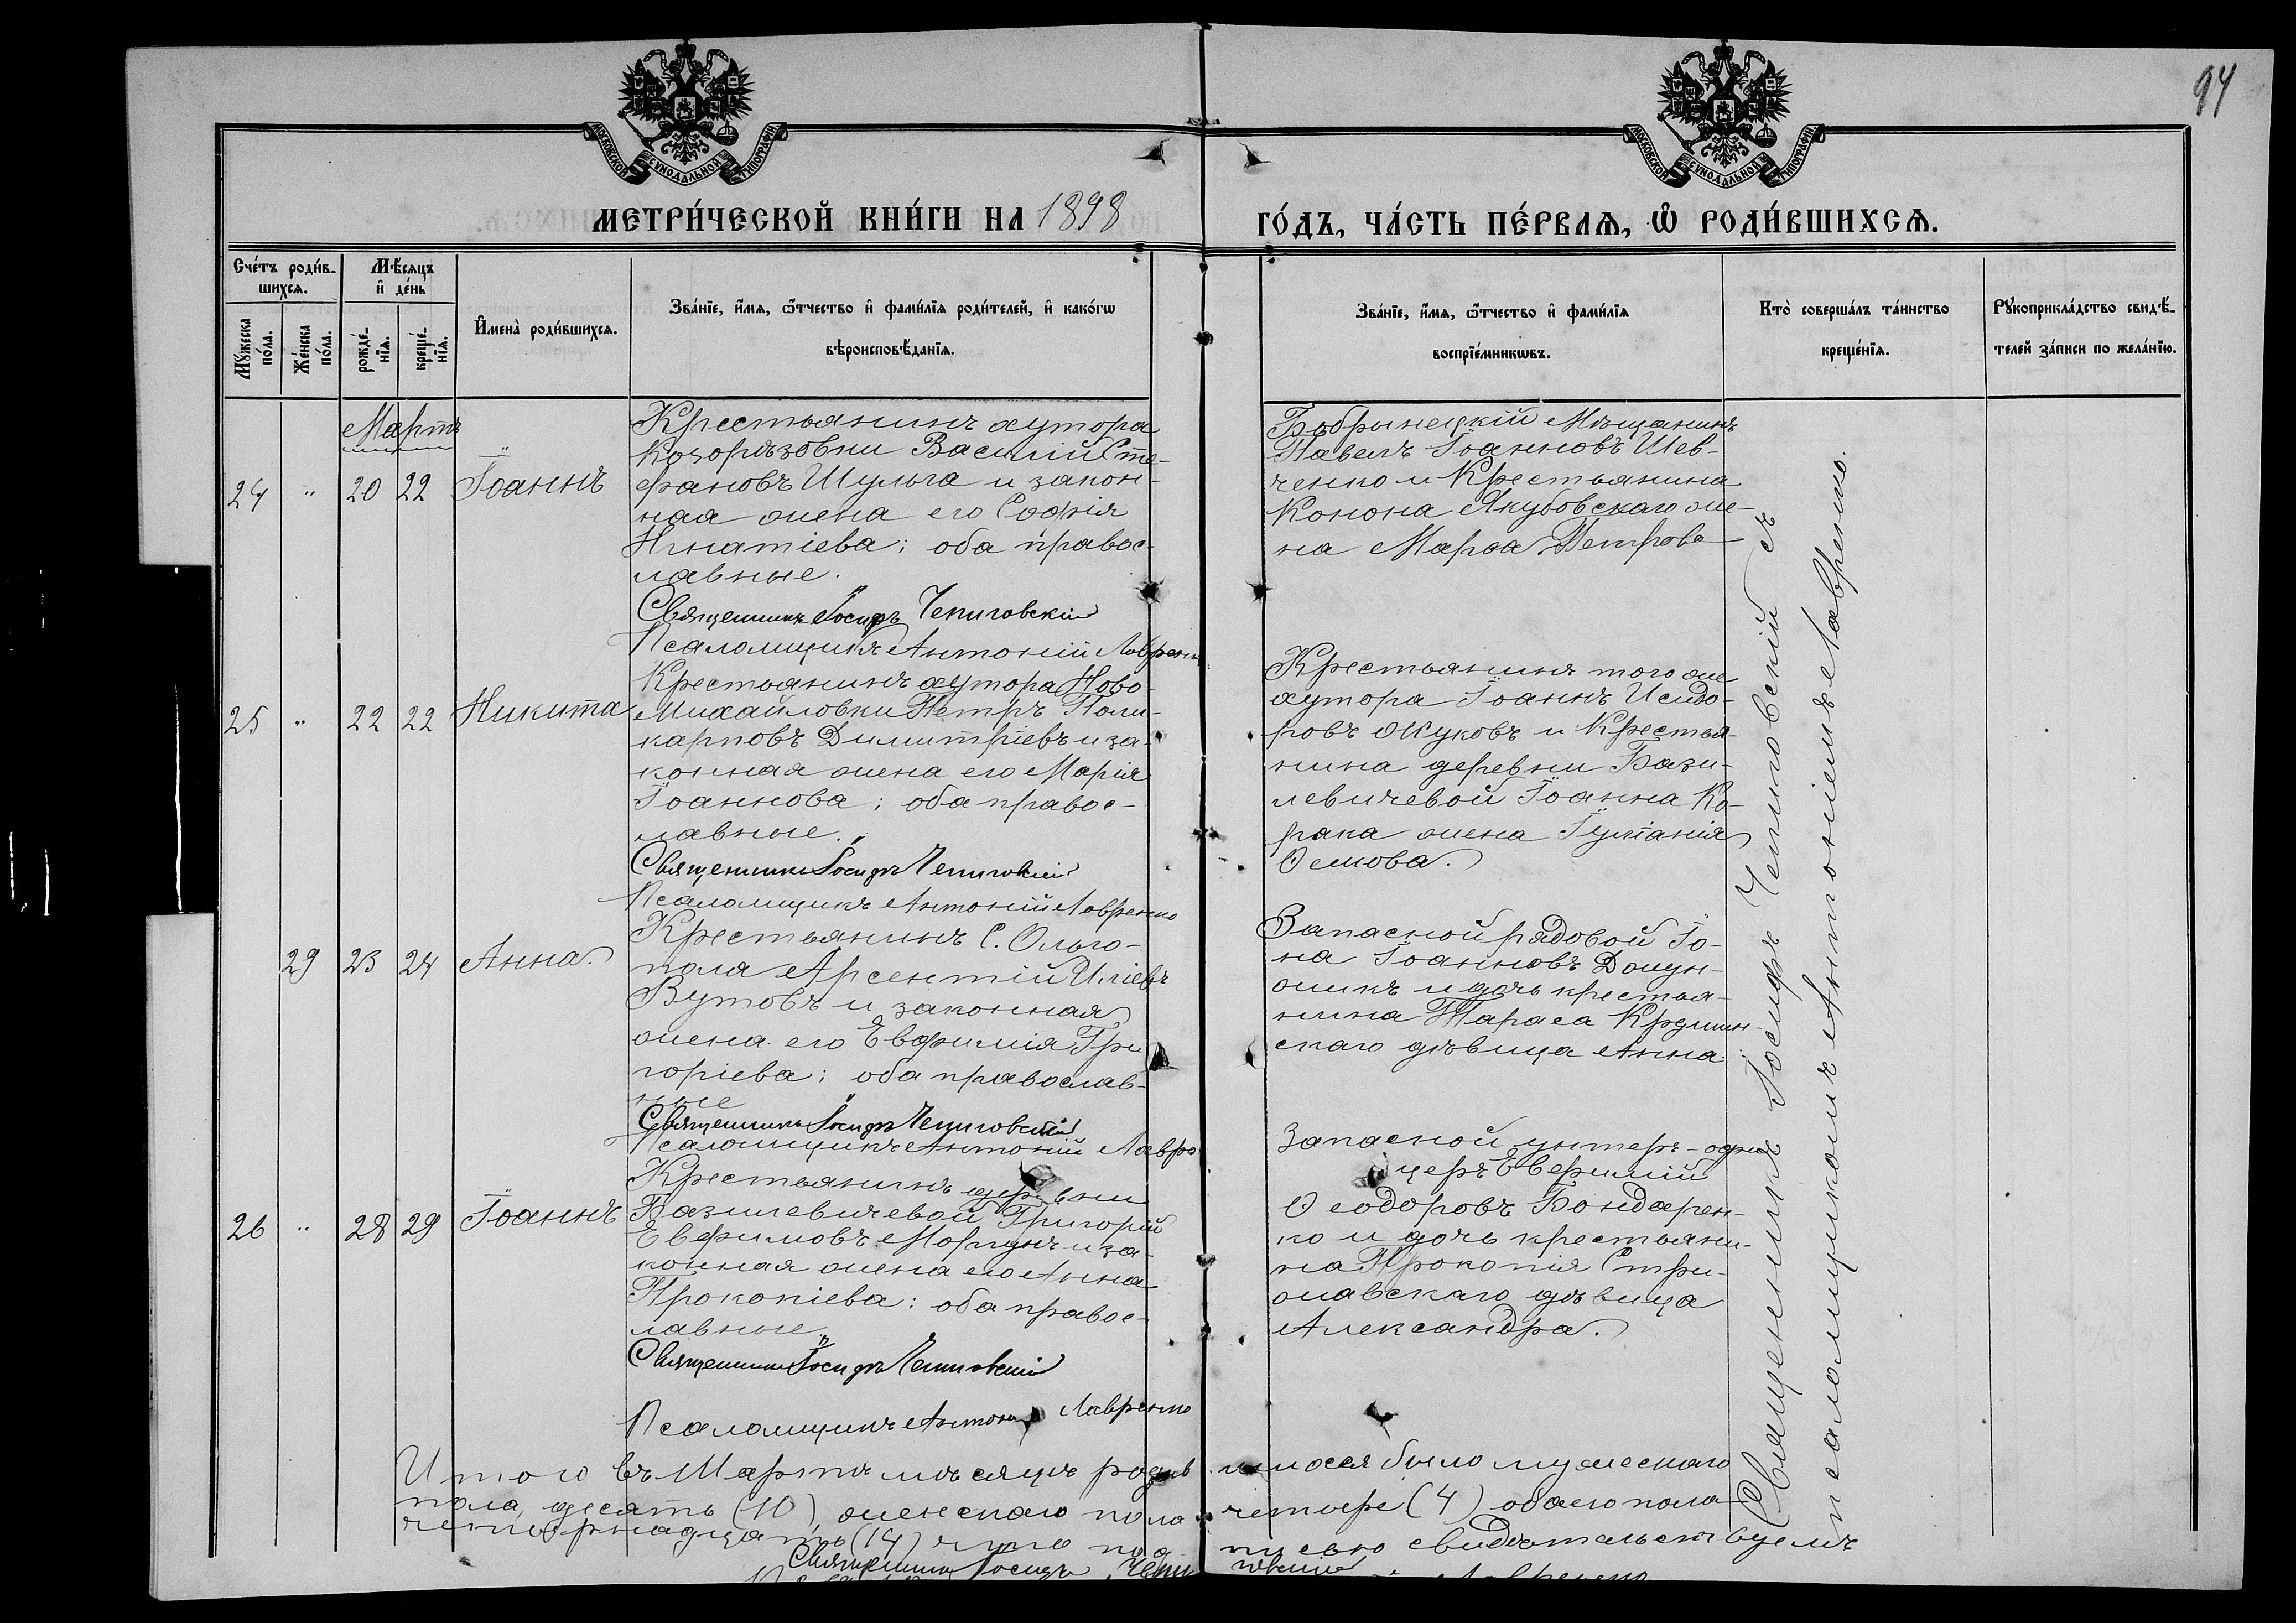 94
МОСКОВСКОЙ СѴНОДАЛЬНОЙ ТИПОГРАФІИ
МОСКОВСКОЙ СѴНОДАЛЬНОЙ ТИПОГРАФІИ
МЕТРИ́ЧЕСКОЙ КНИ́ГИ НА 1898
ГО́ДЪ, ЧА́СТЬ ПЕ́РВАѦ, Ѡ҆ РОДИ́ВШИХСѦ.
Сче́тъ роди́в-
шихсѧ.
Мѣ́сѧцъ
и҆ де́нь
Мꙋ́жеска
по́ла.
Же́нска
по́ла.
рожде́-
нїѧ.
креще́-
нїѧ.
И҆мена̀ роди́вшихсѧ.
Зва́нїе, и҆́мѧ, ѻ҆́тчество и҆ фами́лїѧ роди́телей, и҆ како́гѡ
вѣроисповѣ́данїѧ.
Зва́нїе, и҆́мѧ, ѻ҆́тчество и҆ фами́лїѧ
воспрїе́мникѡвъ.
Кто̀ соверша́лъ та́инство
креще́нїѧ.
Рꙋкоприкла́дство свидѣ́-
телей за́писи по жела́нїю.
Мартъ
24 " 20 22 Іоаннъ
Крестьянинъ хутора
Козорѣзовки Василій Сте-
фановъ Шульга и закон-
ная жена его Софія
Игнатіева; оба правос-
лавные.
Священникъ Іосифъ Чепиговскій
Псаломщикъ Антоній Лавренко
Бобринецкій Мѣщанинъ
Павелъ Іоанновъ Шев-
ченко и Крестьянина
Конона Якубовскаго же-
на Марѳа Петрова
25 " 22 22 Никита
Крестьянинъ хутора Ново-
Михайловки Петръ Поли-
карповъ Димитріевъ и за-
конная жена его Марія
Іоаннова; оба правос-
лавные.
Священникъ Іосифъ Чепиговскій
Псаломщикъ Антоній Лавренко
Крестьянинъ того же
хутора Іоаннъ Исидо-
ровъ Жуковъ и Крестья-
нина деревни Бази-
левичевой Іоанна Ко-
рака жена Іуліанія
Ѳомова.
29 23 24 Анна.
Крестьянинъ С. Ольго-
поля Арсентій Иліевъ
Вутовъ и законная
жена его Евфимія Гри
горіева; оба православ-
ные
Священникъ Іосифъ Чепиговскій
Псаломщикъ Антоній Лавре
Запасной рядовой Іо-
на Іоанновъ
и дочь крестья-
нина Тараса
скаго дѣвица Анна.
26 " 28 29 Іоаннъ
Крестьянинъ деревни
Базилевичевой Григорій
Евфимовъ Моргунъ и за-
конная жена его Анна
Прокопіева: оба правос-
лавные.
Священникъ Іосифъ Чепиговскій
Псаломщикъ Антоній Лавренко
Запасной унтеръ-офи
церъ Евфимій
Ѳеодоровъ Бондарен-
ко и дочь крестьяни-
на Прокопія Стри-
жавскаго дѣвица
Александра.
Священникъ Іосифъ Чепиговскій съ
псаломщикомъ Антоніемъ Лавренко.
Итого въ Мартѣ мѣсяцѣ родившихся было мужескаго
пола десять (10), женскаго пола четыре (4) обоего пола
четырнадцать (14) что подписью свидѣтельствуемъ
Священникъ Іосифъ Чепиговскій